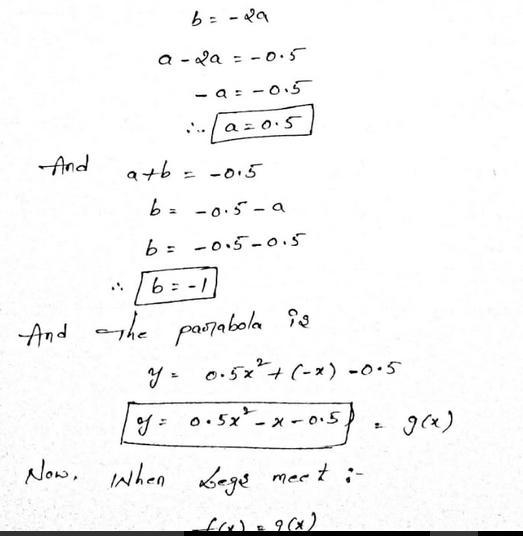 b = -2a
a - 2a = -0.5
-a = -0.5
∴ a = 0.5
And a+b = -0.5
b = -0.5 - a
b = -0.5 - 0.5
∴ b = -1
And the parabola is
y = 0.5x² + (-x) - 0.5
y = 0.5x² - x - 0.5 = g(x)
Now, When Legs meet :-
f(x) = g(x)